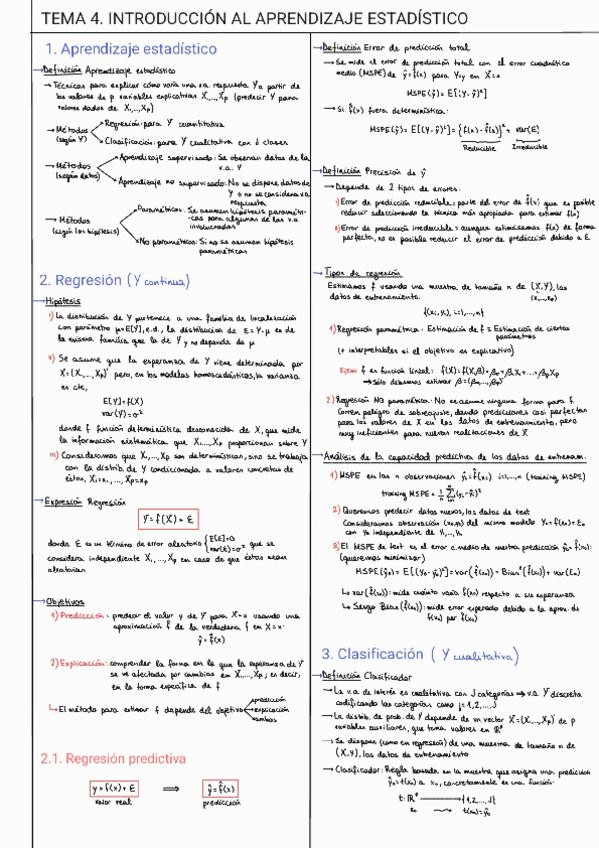 TEMA 4. INTRODUCCIÓN AL APRENDIZAJE ESTADÍSTICO
1. Aprendizaje estadístico
→ Definición Aprendizaje estadístico
→ Técnicas para explicar cómo varía una v.a. respuesta Y a partir de
los valores de p variables explicativas X₁,...,Xp (predecir Y para
valores dados de X₁,...,Xp)
→ Métodos (según Y)
Regresión: para Y cuantitativa
Clasificación: para Y cualitativa con d clases
→ Métodos (según datos)
Aprendizaje supervisado: Se observan datos de la
v.a. Y
Aprendizaje no supervisado: No se dispone datos de
Y o no se considera va
respuesta
→ Métodos (según las hipótesis)
Paramétricos: Se asumen hipótesis paramétri-
cas para algunas de las v.a
involucradas
No paramétricos: Si no se asumen hipótesis
paramétricas
2. Regresión (Y continua)
→ Hipótesis
i) La distribución de Y pertenece a una familia de localización
con parámetro μ=E(Y), e.d., la distribución de ε=Y-μ es de
la misma familia que la de Y y no depende de μ
ii) Se asume que la esperanza de Y viene determinada por
X=(X₁,...,Xp)' pero, en los modelos homoscedásticos, la varianza
es cte,
E(Y)=f(X)
var(Y)=σ²
donde f función determinística desconocida de X, que mide
la información sistemática que X₁,...,Xp proporcionan sobre Y
iii) Consideramos que X₁,...,Xp son determinísticas, sino se trabaja
con la distrib. de Y condicionada a valores concretos de
éstas, X₁=x₁,...,Xp=xp
→ Expresión Regresión
Y=f(X)+ε
donde ε es un término de error aleatorio {E(ε)=0 var(ε)=σ² que se
considera independiente X₁,...,Xp en caso de que éstas sean
aleatorias
→ Objetivos
1) Predicción: predecir el valor y de Y para X=x usando una
aproximación f̂ de la verdadera f en X=x:
ŷ=f̂(x)
2) Explicación: comprender la forma en la que la esperanza de Y
se ve afectada por cambios en X₁,...,Xp; es decir,
en la forma específica de f
↳ El método para estimar f depende del objetivo
predicción
explicación
ambos
2.1. Regresión predictiva
y=f(x)+ε ⟹ ŷ=f̂(x)
valor real predicción
→ Definición Error de predicción total
→ Se mide el error de predicción total con el error cuadrático
medio (MSPE) de ŷ=f̂(x) para Y=y en X=x
MSPE(ŷ)=E[(Y-ŷ)²]
→ Si f̂(x) fuera determinística:
MSPE(ŷ)=E[(Y-ŷ)²]={f(x)-f̂(x)}²+var(ε)
Reducible Irreducible
→ Definición Precisión de ŷ
→ Depende de 2 tipos de errores:
i) Error de predicción reducible: parte del error de f̂(x) que es posible
reducir seleccionando la técnica más apropiada para estimar f(x)
ii) Error de predicción irreducible: aunque estimásemos f(x) de forma
perfecta, no es posible reducir el error de predicción debido a ε
→ Tipos de regresión
Estimamos f usando una muestra de tamaño n de (X,Y), los
datos de entrenamiento.
(x₁,...,xp)
{(xi,yi), i=1,...,n}
1) Regresión paramétrica: Estimación de f = Estimación de ciertos
parámetros
(+ interpretables si el objetivo es explicativo)
Ejem f es función lineal: f(X)=f(X,β)=β₀+β₁X₁+...+βpXp
→ Sólo debemos estimar β=(β₀,...,βp)'
2) Regresión No paramétrica: No se asume ninguna forma para f
Corren peligro de sobreajuste, dando predictores casi perfectos
para los valores de X en los datos de entrenamiento, pero
muy ineficientes para nuevas realizaciones de X
→ Análisis de la capacidad predictiva de los datos de entrenam.
1) MSPE en las n observaciones ŷi=f̂(xi) i=1,...,n (training MSPE)
training MSPE = 1/n Σ(yi-ŷi)²
2) Queremos predecir datos nuevos, los datos de test
Consideramos observación (x₀,y₀) del mismo modelo Y₀=f(x₀)+ε₀
con Y₀ independiente de Y₁,...,Yn
3) El MSPE de test es el error c.medio de nuestra predicción ŷ₀=f̂(x₀):
(queremos minimizar)
MSPE(ŷ₀)=E[(Y₀-ŷ₀)²]=var(f̂(x₀))+Bias²(f̂(x₀))+var(ε₀)
↳ var(f̂(x₀)): mide cuánto varía f̂(x₀) respecto a su esperanza
↳ Sesgo Bias(f̂(x₀)): mide error esperado debido a la aprox. de
f(x₀) por f̂(x₀)
3. Clasificación (Y cualitativa)
→ Definición Clasificador
→ La v.a de interés es cualitativa con J categorías ⟹ v.a. Y discreta
codificando las categorías como j=1,2,...,J
→ La distrib. de prob. de Y depende de un vector X=(X₁,...,Xp)' de p
variables auxiliares, que toma valores en ℝᵖ
→ Se dispone (como en regresión) de una muestra de tamaño n de
(X,Y), los datos de entrenamiento
→ Clasificador: Regla basada en la muestra que asigna una predicción
ŷ₀=t(x₀) a x₀, concretamente es una función:
t: ℝᵖ ⟶ {1,2,...,J}
x₀ ⟿ t(x₀)=ŷ₀